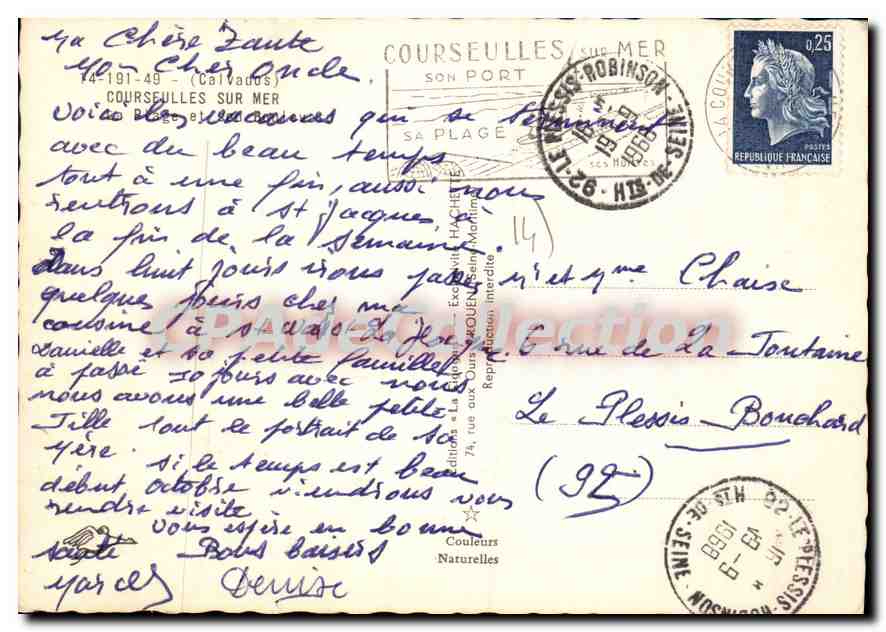 Ma Chère Tante
Mon Cher Oncle.
14-191-49 - (Calvados)
COURSEULLES SUR MER
La Plage et les
voici les vacances qui se terminent
avec du beau temps
tout à une fin, aussi nous
rentrons à St Jacques à
la fin de la semaine.
Dans huit jours nous
quelques jours chez ma
cousine à St
Danielle et sa petite famille
à passé 10 jours avec nous
nous avons une belle petite
Fille tout le portrait de sa
Mère.
si le temps est beau
début octobre viendrions vous
rendre visite
Vous espère en bonne
santé Bons baisers
Marcel Denise
COURSEULLES SUR MER
SON PORT
SA PLAGE
92 - LE PLESSIS-ROBINSON
HTS-DE-SEINE
1968
0,25
POSTES
REPUBLIQUE FRANÇAISE
14)
Editions « La
Exclusivité HACHETTE
74, rue aux Ours - ROUEN (Seine-Maritime)
Reproduction interdite
Couleurs
Naturelles
Mr et Mme Chaise
6 rue de La Fontaine
Le Plessis-Bouchard
(92)
92-LE PLESSIS-ROBINSON
HTS-DE-SEINE
1968
CPAdeCollection